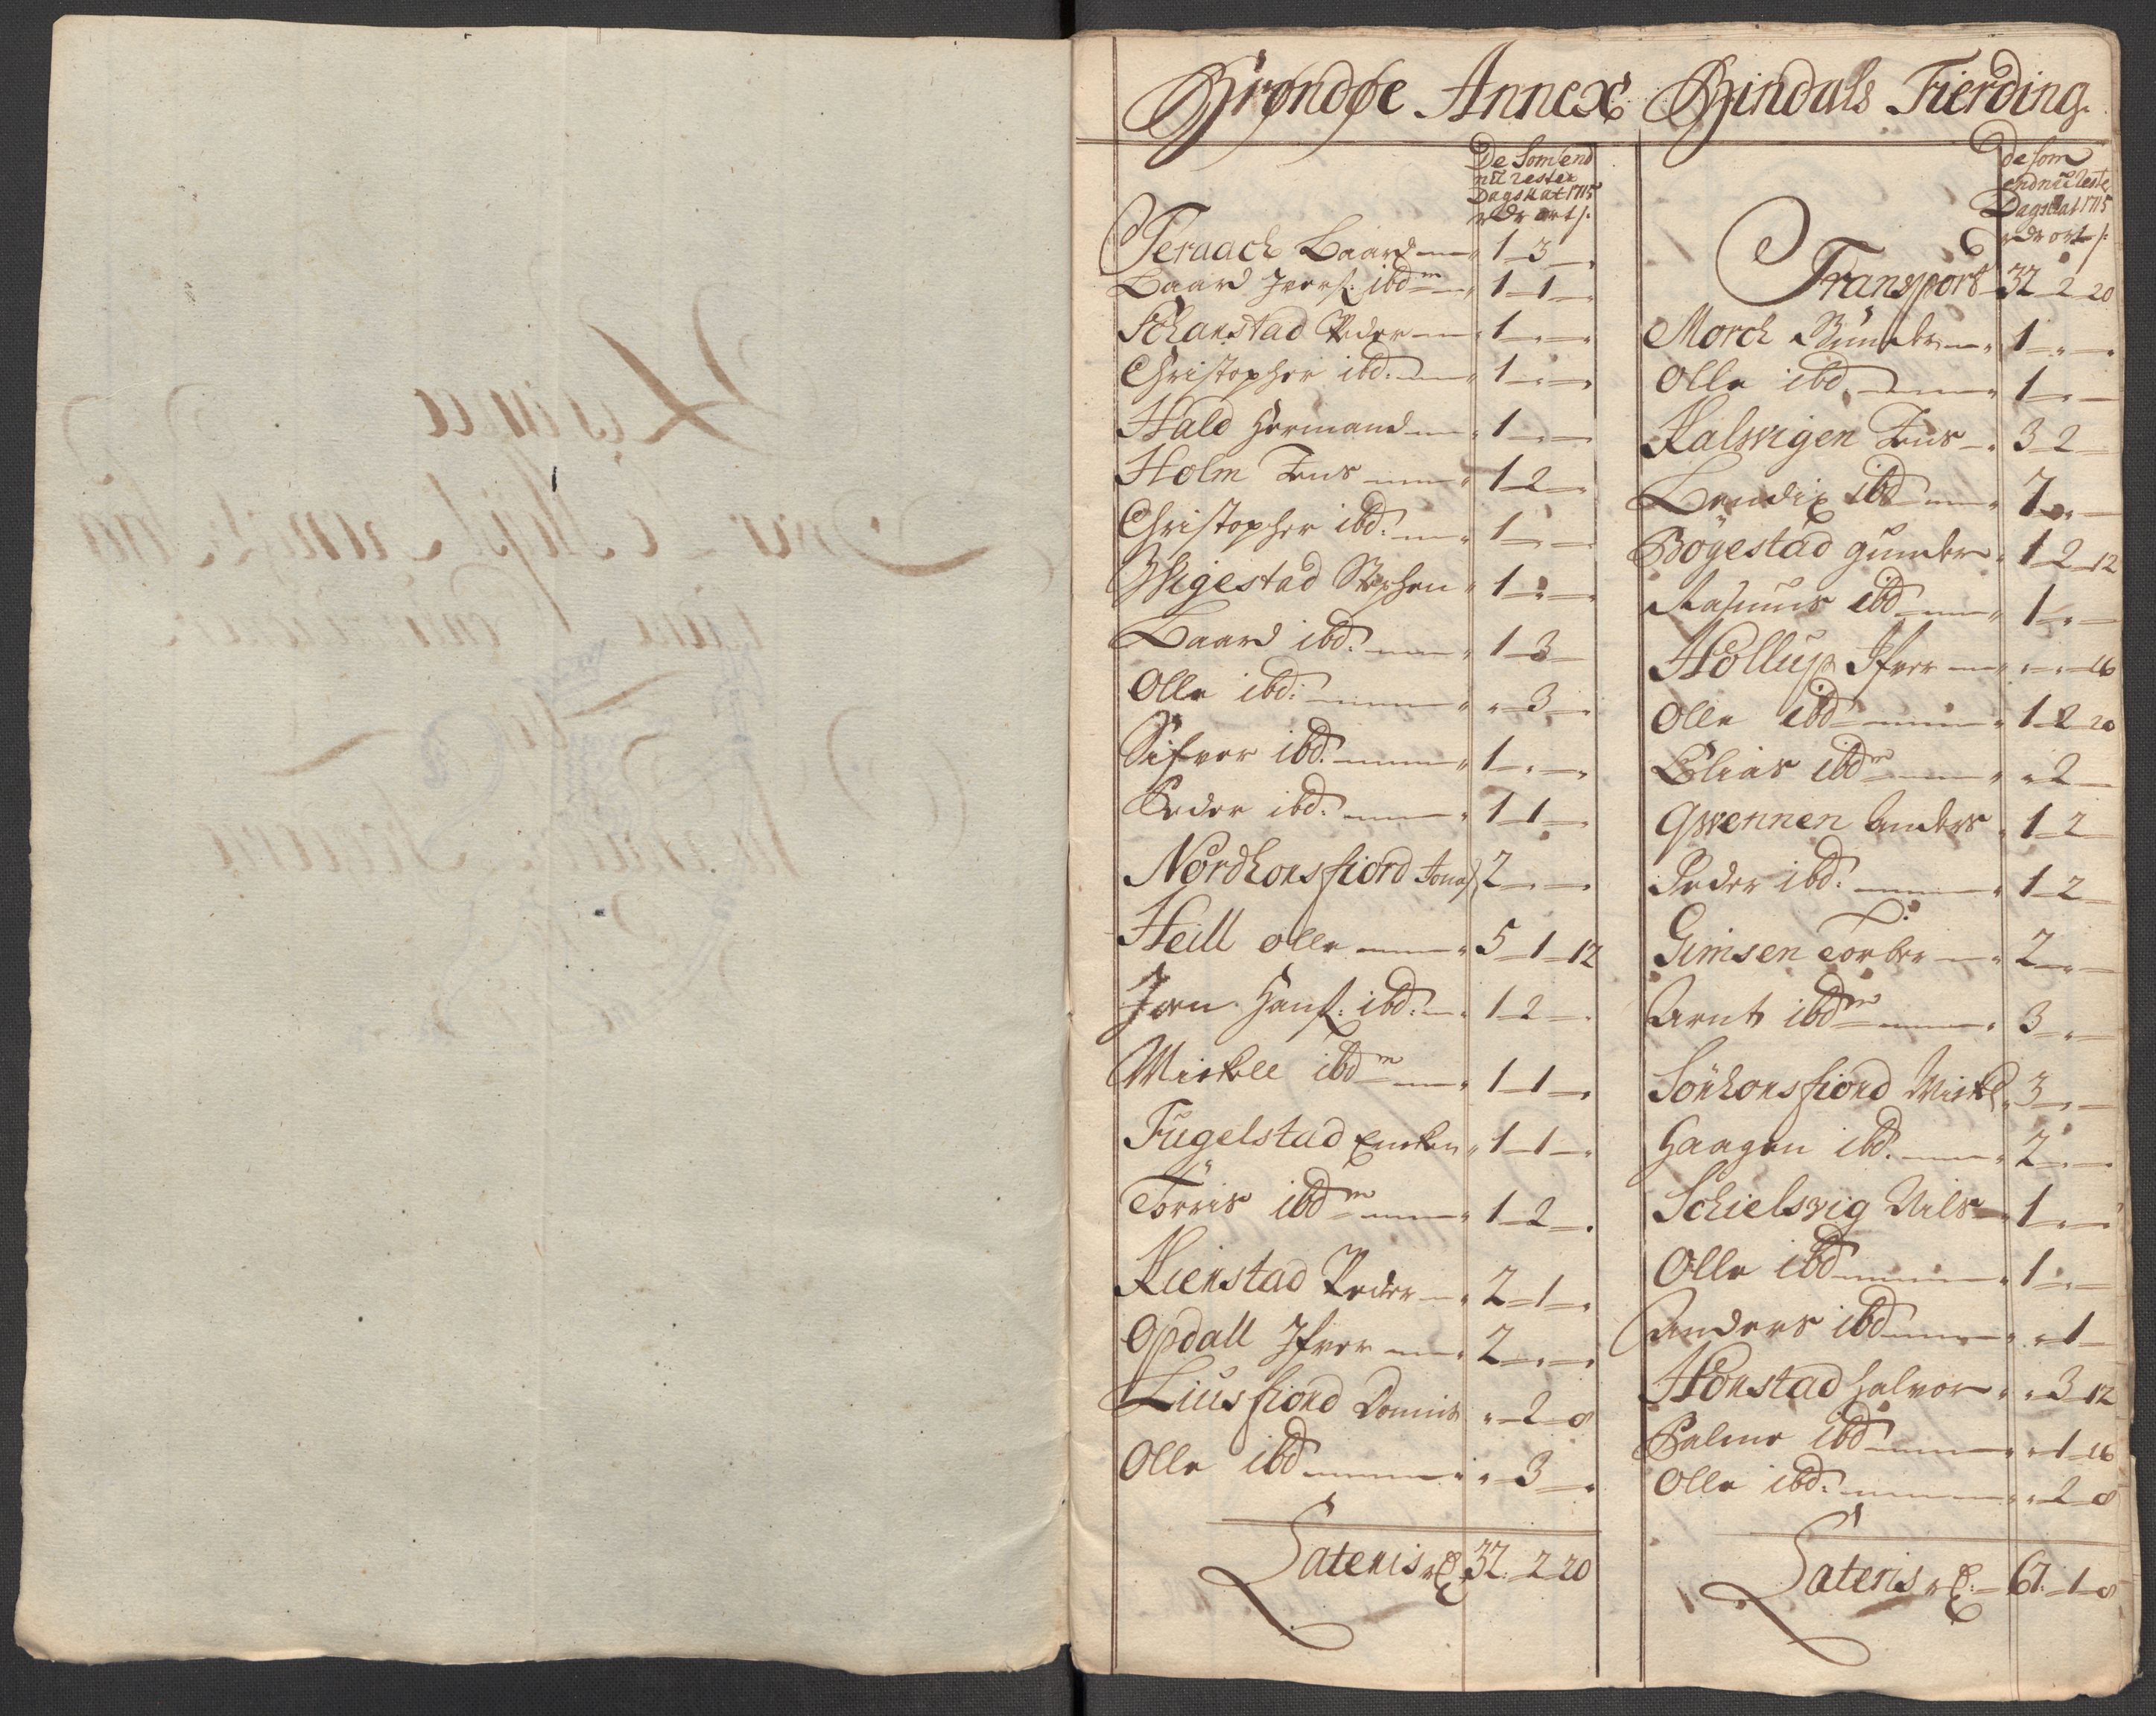 Brøndøe Annex Bindals Fierding.
De som end
nu rester
Dagskat 1715
rdr ort s.
Teraack Baard 1 - 3 -
Baard Ivers: ibdm 1 - 1 -
Schanstad Peder 1 - -
Christopher ibd: 1 - -
Hald Hermand 1 - -
Holm Jens 1 - 2 -
Christopher ibd: 1 - -
Wigestad Stephen 1 - -
Baard ibd: 1 - 3 -
Olle ibd: - 3 -
Sifver ibd: 1 - -
Peder ibd: 1 - 1 -
Nordhorsfiord Jonas 2 - -
Heill olle 5 - 1 - 12
Jørn Hans: ibd: 1 - 2 -
Mickell ibdm 1 - 1 -
Fugelstad 1 - 1 -
Torris ibdm 1 - 2 -
Kienstad Peder 2 - 1 -
Opdall Ifver 2 - -
Liusfiord - 2 - 8
Olle ibd - 3 -
Lateris 32 - 2 20
de som
endnu Reste
Dagskat 1715
rdr ort s:
Transport 32 - 2 - 20
Morch Gunder 1 - -
Olle ibd 1 - -
Kalsvigen Jens 3 - 2 -
Bendix ibd 7 - -
Bøgestad gunder 1 - 2 - 12
Rasmus ibd 1 - -
Hollup Ifver - - 16
Olle ibd 1 - 2 - 20
Elias ibdm - 2 -
Qwennen Anders 1 - 2
Peder ibd: 1 - 2 -
Gimsen Torber 2 - -
Arnt ibdm 3 - -
Sørhorsfiord Mickel 3 - -
Haagen ibd: 2 - -
Schielsvig Nils 1 - -
Olle ibd 1 - -
Anders ibd - 1 -
Hønstad Halvor - 3 - 12
Palme ibd - 1 - 16
Olle ibd: - 2 - 8
Lateris 67: - 1 - 8